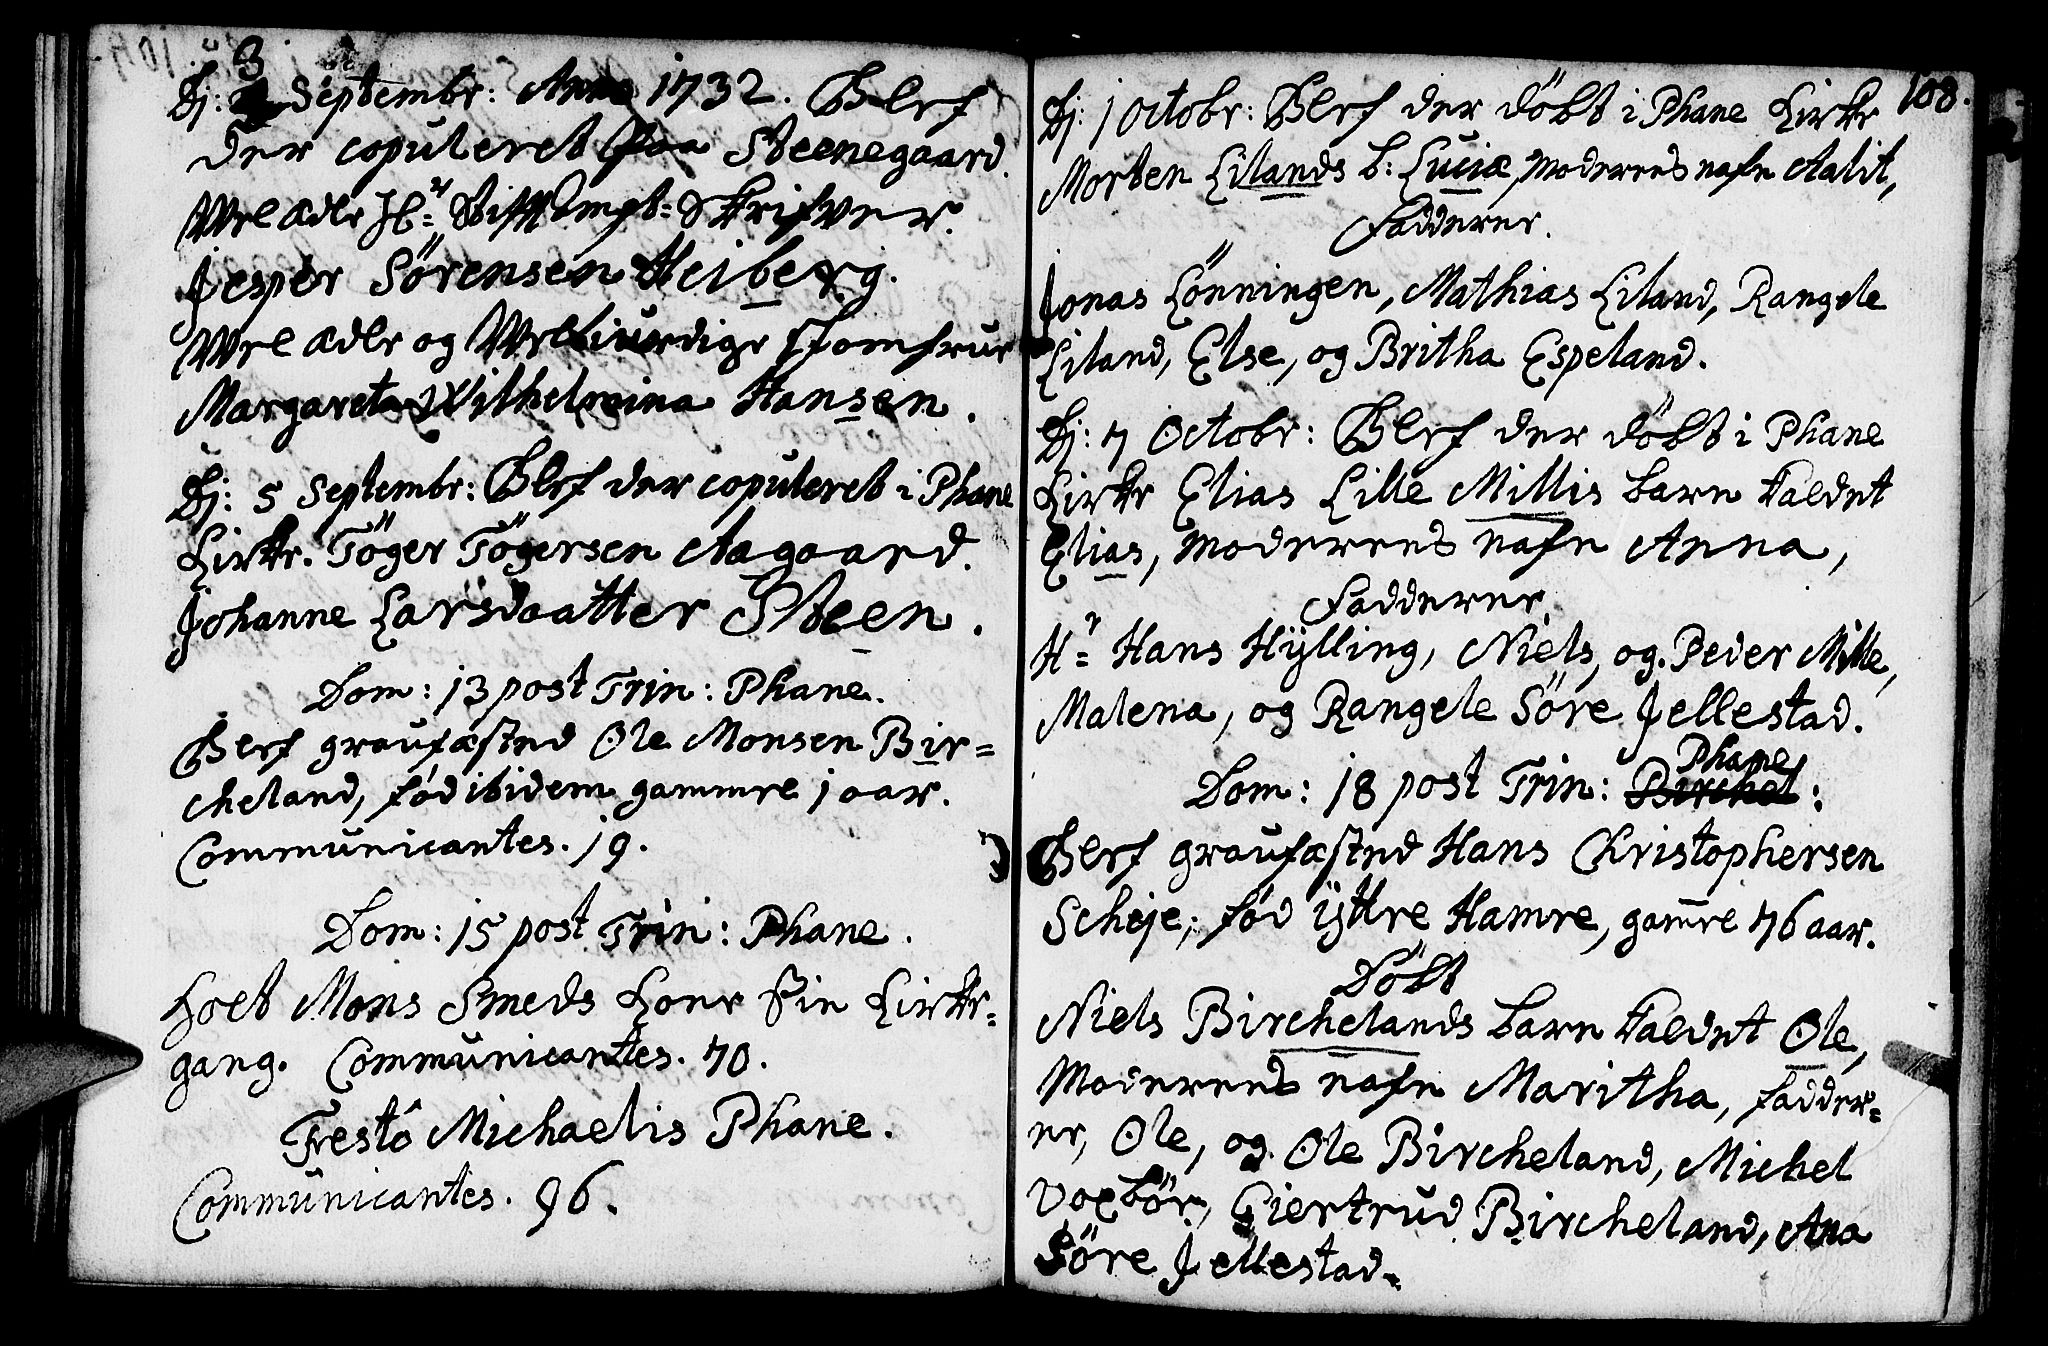 Dj: 3 Septembr: Anno 1732. Blef
der copuleret paa Steenegaard.
Wel ædle Hr: Stifft Ampt-Skrifver.
Jesper Sörensen Heiberg.
Wel ædle og Velbiurdige Jomfrue
Margareta Wilhelmina Hansen.
Dj: 5 Septembr: Blef der copuleret i Phane
Kirke. Töger Tögersen Aagaard.
Johanne Larsdaatter Steen.
Dom: 13 post Trin: Phane.
Blef graufæsted Ole Monsen Bir=
cheland, fød ibidem gammel 1 aar.
Communicantes. 19.
Dom: 15 post Trin: Phane.
Holt Mons Smeds Kone sin Kirke=
gang. Communicantes. 70.
Festô Michaelis Phane.
Communicantes. 96.
108.
Dj: 1 Octobr: Blef der döbt i Phane Kirke
Morten Lilands b: Luciæ, Moderens nafn Aalit,
Fadderer.
Jonas Lönningen, Mathias Liland, Rangele
Liland, Else, og Britha Espeland.
Dj: 7 Octobr: Blef der döbt i Phane
Kirke Elias Lille Millis barn kaldet
Elias, Moderens nafn Anna,
Fadderer.
Hr= Hans Hÿlling, Niels, og Peder Mille,
Malena, og Rangele Söre Jellestad.
Dom: 18 post Trin: Phane Birchel:
Blef graufæsted Hans Christophersen
Scheje, fød ÿttre Hamre, gam̄re 76 aar.
Döbt
Niels Birchelands barn kaldet Ole,
Moderens nafn Maritha, fadder=
er, Ole, og Ole Bircheland, Michel
Voxbör, Giertrud Bircheland, Ana
Söre Jellestad.